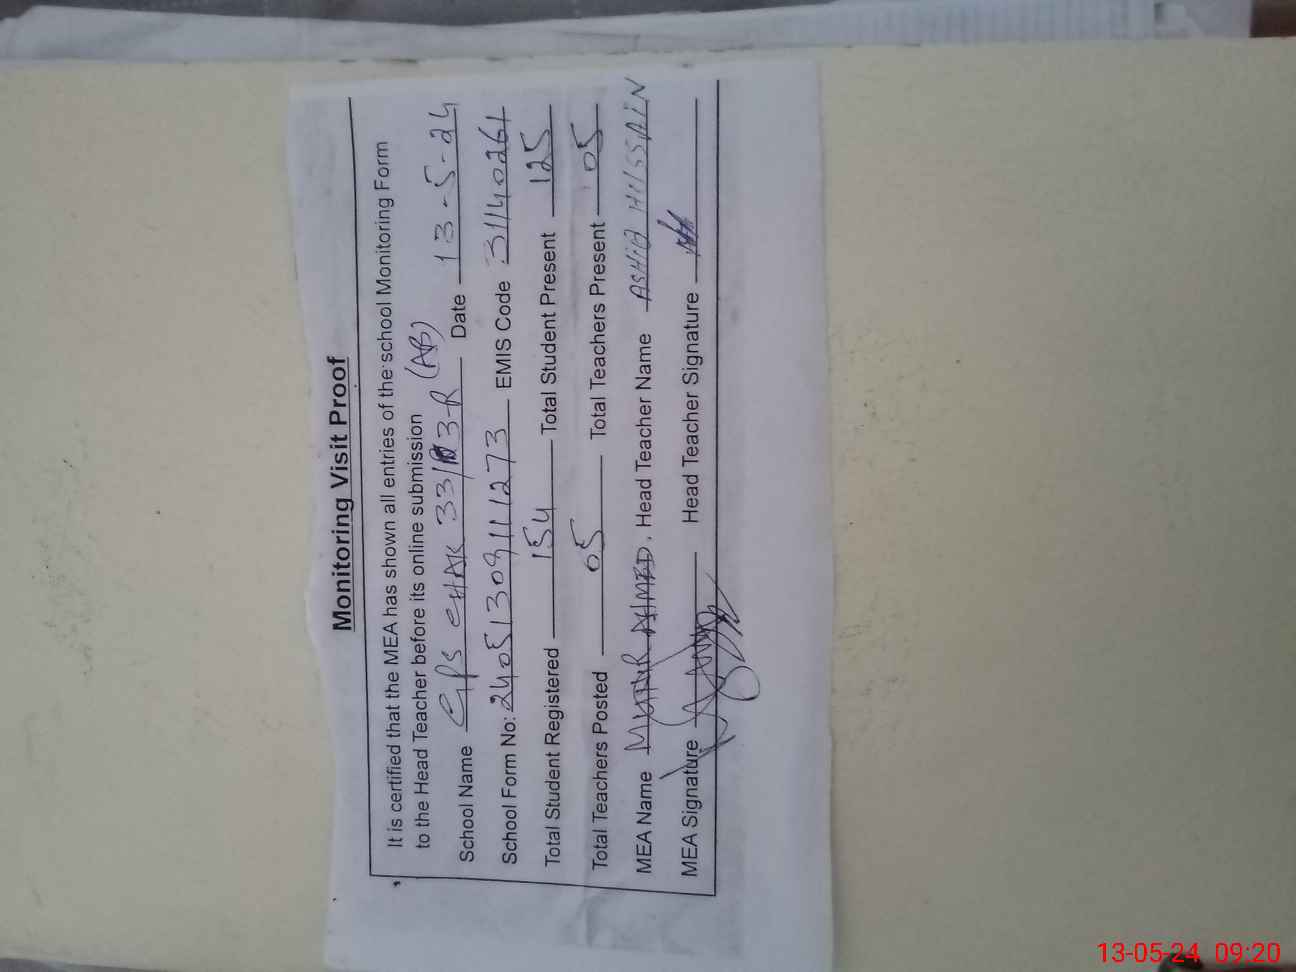 Monitoring Visit Proof
It is certified that the MEA has shown all entries of the school Monitoring Form
to the Head Teacher before its online submission
School Name GPS CHAK 33/3-R (AB) Date 13-5-24
School Form No: 240513091111273 EMIS Code 31140261
Total Student Registered 154 Total Student Present 125
Total Teachers Posted 05 Total Teachers Present 05
MEA Name AHMED. Head Teacher Name HUSSAIN
MEA Signature Head Teacher Signature
13-05-24 09:20